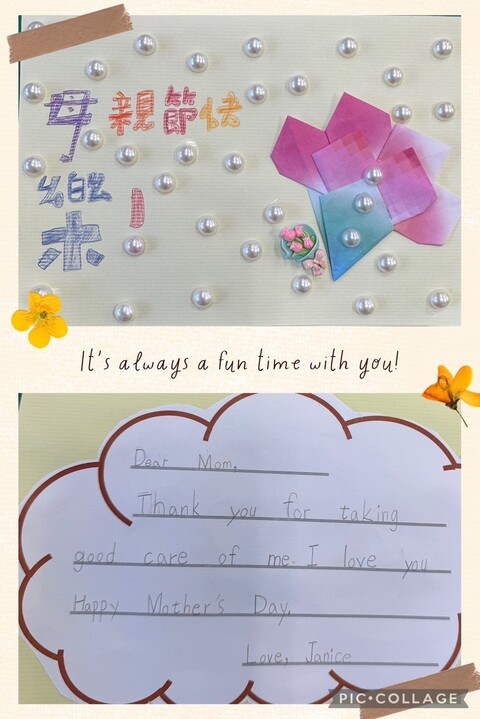 母親節快
樂!
It's always a fun time with you!
Dear Mom,
Thank you for taking
good care of me. I love you
Happy Mother's Day.
Love, Janice
PIC•COLLAGE